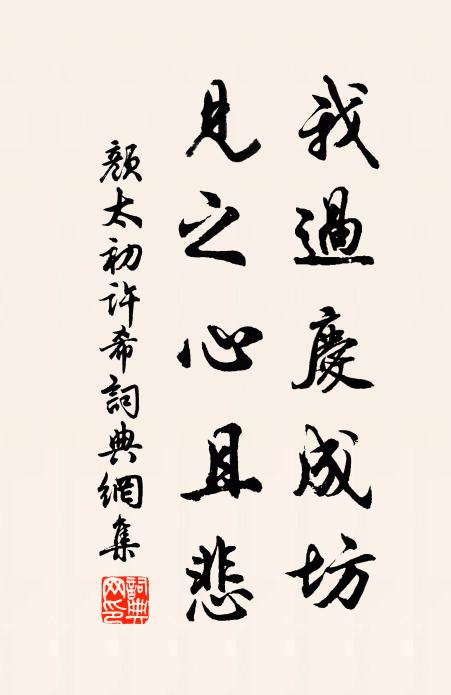 我過慶成坊
見之心且悲
顏太初許希詞典網集
詞典網印